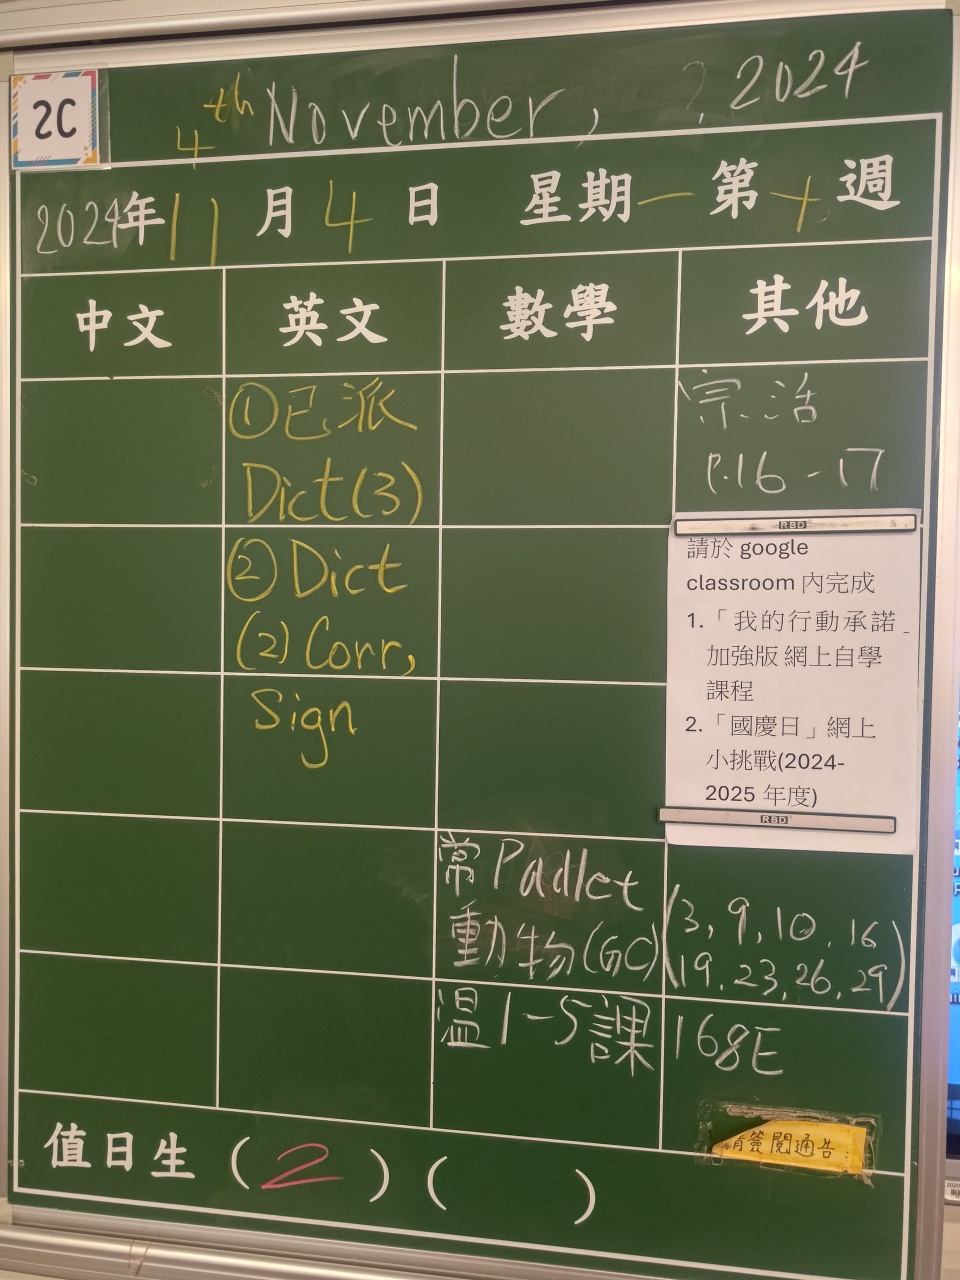 2C
4th November, 2024
2024年11月4日 星期一 第十週
中文 英文 數學 其他
①已派
Dict(3)
②Dict
(2) Corr,
Sign
宗.活
P.16-17
RBD
請於 google
classroom 內完成
1.「我的行動承諾」
加強版 網上自學
課程
2.「國慶日」網上
小挑戰(2024-
2025 年度)
RBD
常 Padlet
動物(GC)
(3, 9, 10, 16
19, 23, 26, 29)
溫1-5課
168E
請簽閱通告:
值日生 (2) ( )